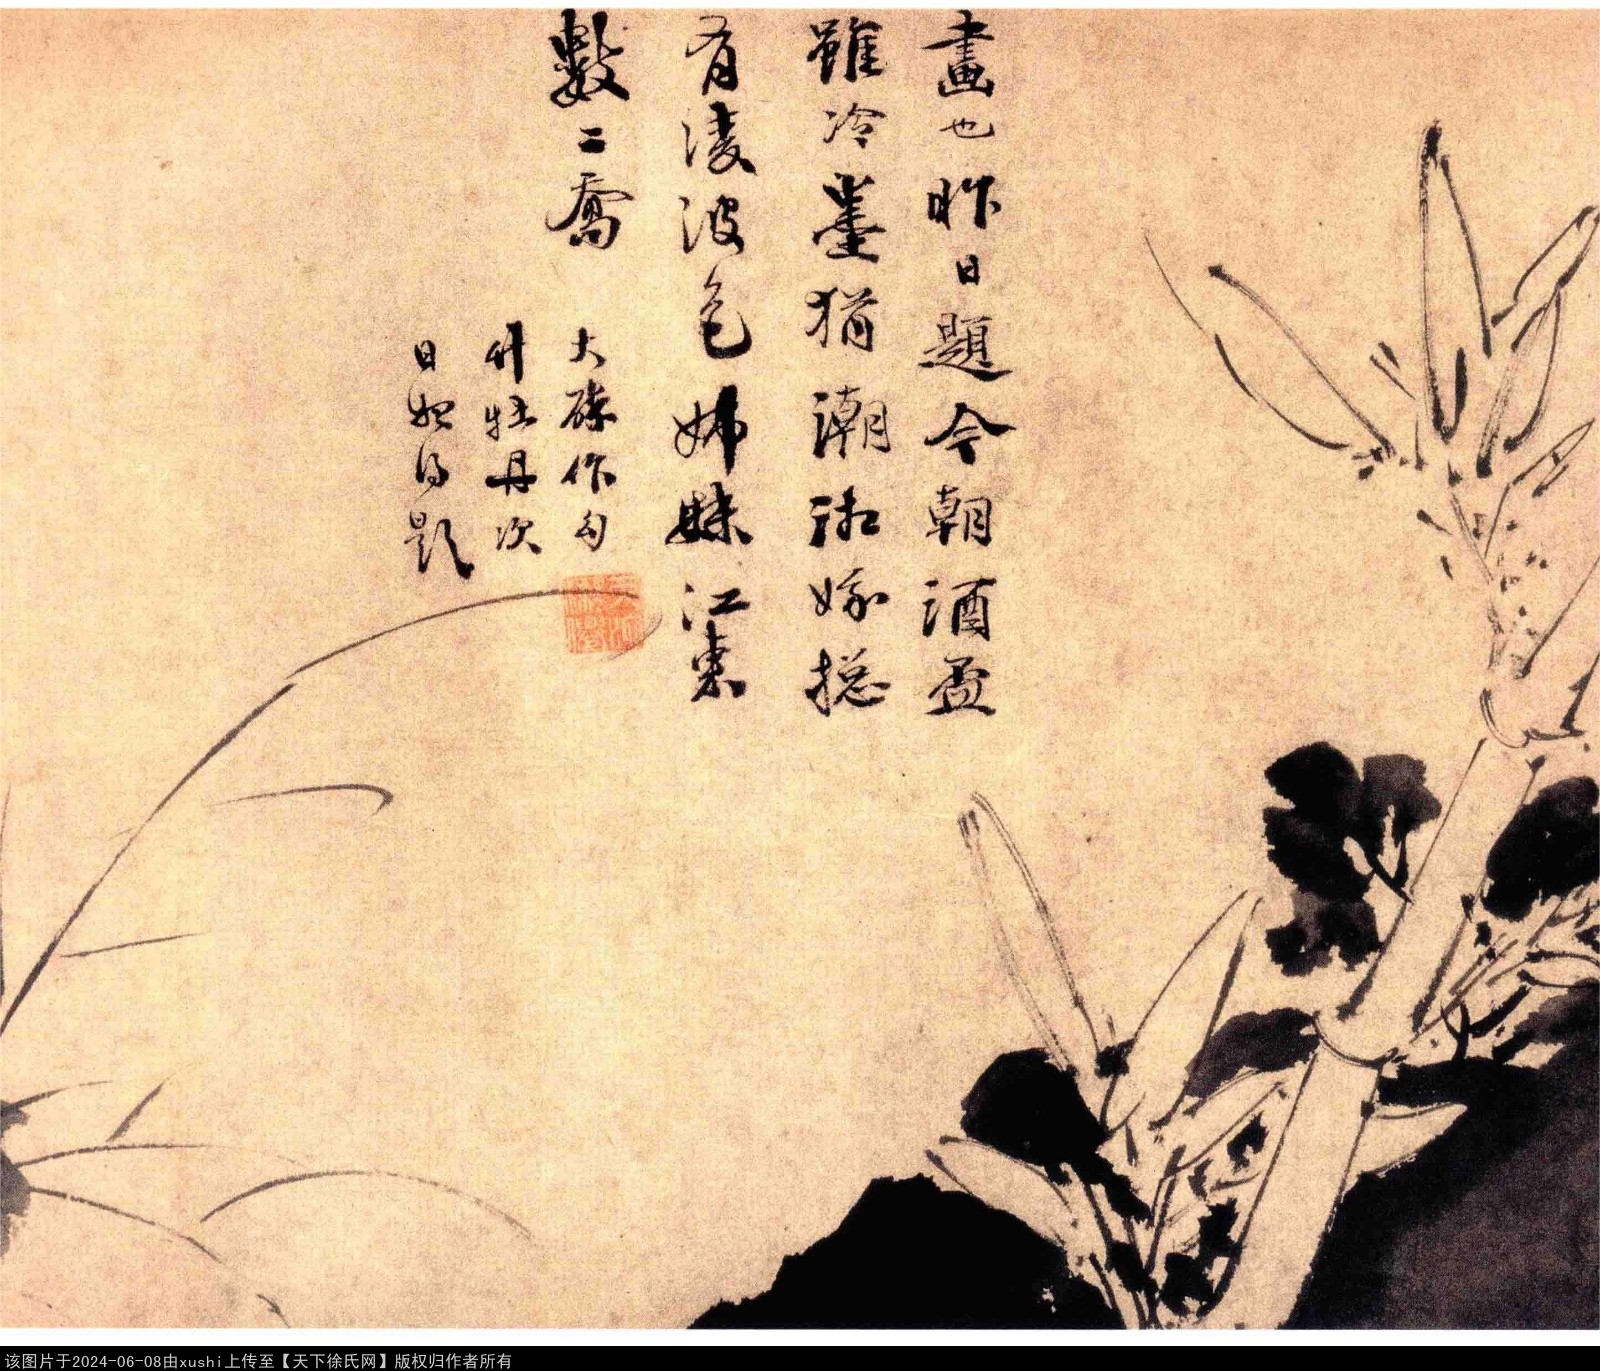 畫也昨日題今朝酒盃
雖冷墨猶潮湘娥摠
有淩波色姊妹江東
數二喬
大醉作勾
竹牡丹次
日始得題
该图片于2024-06-08由xushi上传至【天下徐氏网】版权归作者所有